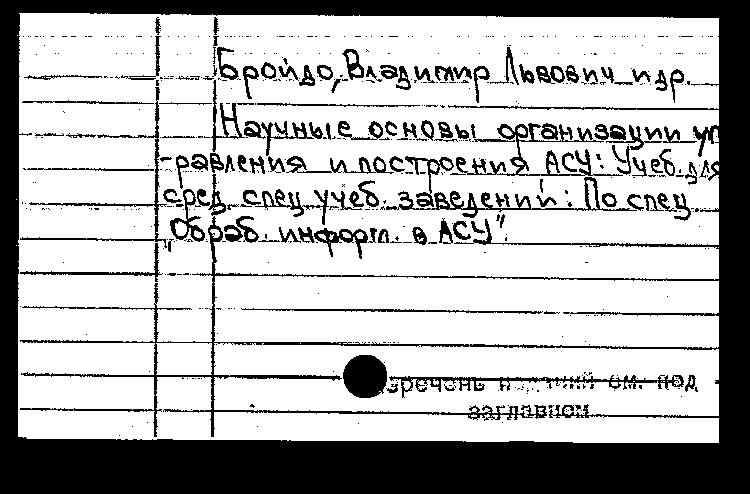 Бройдо, Владимир Львович и др.
Научные основы организации уп
-равления и построения АСУ: Учеб. для
сред. спец. учеб. заведений: По спец.
"Обраб. информ. в АСУ".
Перечень изданий см. под
заглавием